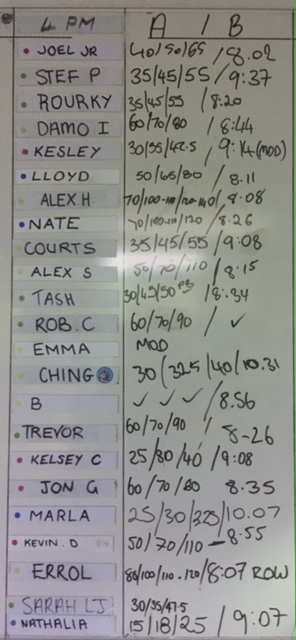 4 PM A / B
JOEL JR 40/50/65 / 8.02
STEF P 35/45/55 / 9:37
ROURKY 35/45/55 / 8:20
DAMO I 60/70/80 / 8:44
KESLEY 30/35/42.5 / 9:14 (MOD)
LLOYD 50/65/80 / 8.11
ALEX H 70/100 / 8:08
NATE 70/100-110/120 / 8.26
COURTS 35/45/55 / 9:08
ALEX S 50/70/110 / 8:15
TASH 30/45/50 PB / 8:34
ROB.C 60/70/90 / ✓
EMMA MOD
CHING 30/32.5/40/10.31
B ✓ ✓ ✓ / 8.56
TREVOR 60/70/90 / 8-26
KELSEY C 25/30/40 / 9:08
JON G 60/70/80 8.35
MARLA 25/30/32.5/10.07
KEVIN.D 50/70/110 - 8.55
ERROL 80/100/110.120/8:07 ROW
SARAH LJ 30/35/47.5
NATHALIA 15/18/25 / 9:07